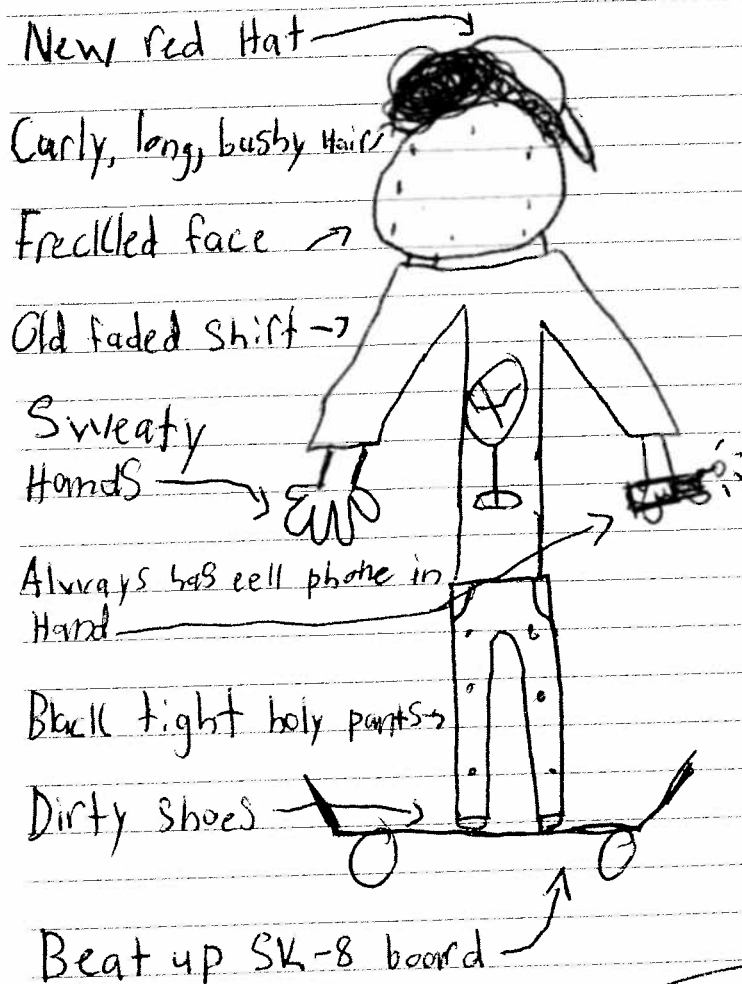 New red Hat
Curly, long, bushy Hair
Freckled face
Old faded shirt
Sweaty
Hands
Always has cell phone in
Hand
Black tight holy pants
Dirty shoes
Beat up SK-8 board